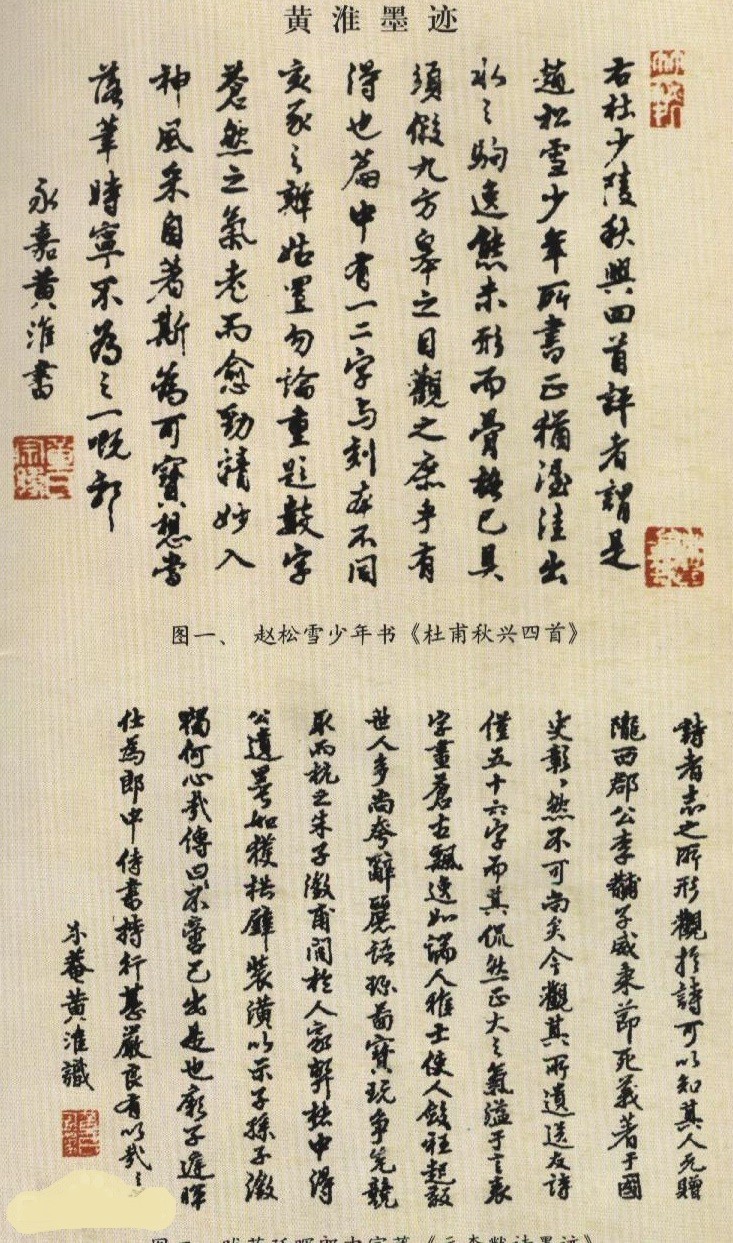 黄淮墨迹
右杜少陵秋興四首評者謂是
趙松雪少年所書正猶渥洼出
水之駒逸態未形而骨格已具
須假九方皋之目觀之庶乎有
得也篇中有一二字与刻本不同
亥豕之雜姑置勿論重題數字
蒼然之氣老而愈勁精妙入
神風采自著斯為可寶想當
落筆時寧不為之一嘅耶
永嘉黄淮書
图一、 赵松雪少年书《杜甫秋兴四首》
詩者志之所形觀於詩可以知其人元贈
隴西郡公李黼子威秉節死義著于國
史彰彰然不可尚矣今觀其所遺送友詩
僅五十六字而其侃然正大之氣溢于言表
字畫蒼古飄逸如端人雅士使人斂衽起敬
世人多尚夸辭麗語珎啚寶玩争先競
取而抗之朱子澂甫間於人家斵枨中得
公遺墨如獲拱璧装潢以示子孫子澂
獨何心哉傳曰不
已出是也厥子廷暉
仕為郎中侍書持行甚嚴良有以哉
介菴黄淮識